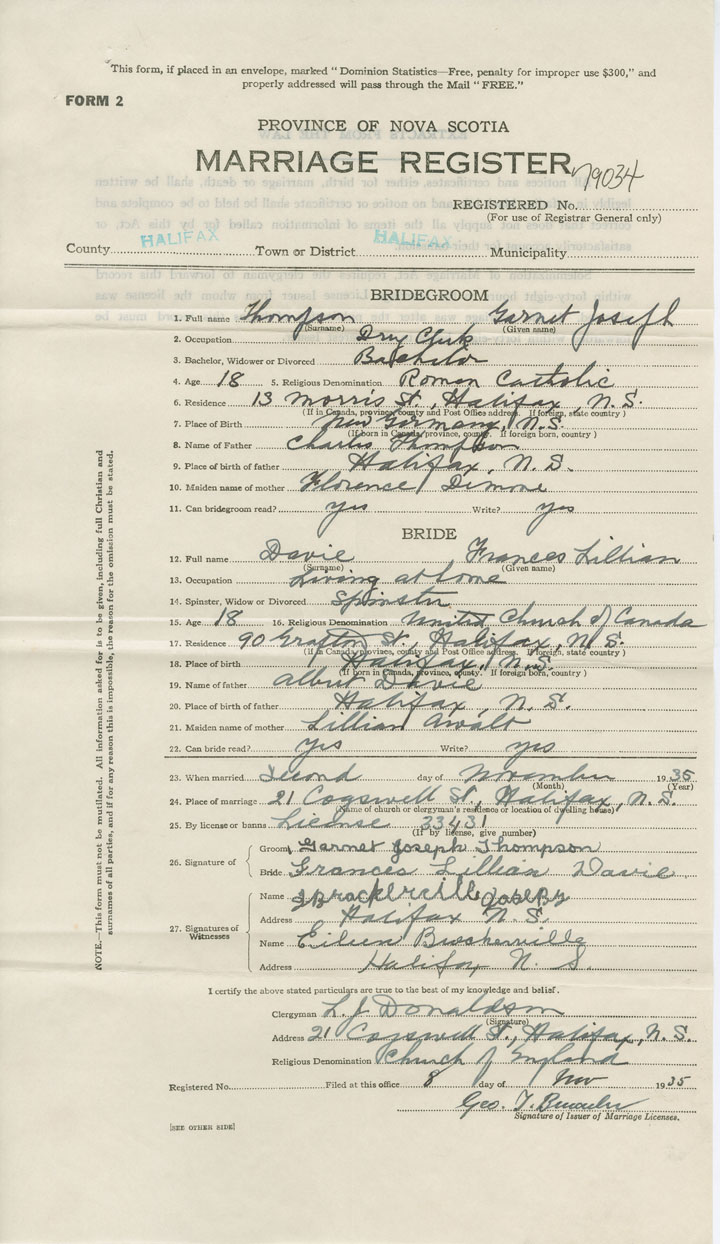 This form, if placed in an envelope, marked "Dominion Statistics—Free, penalty for improper use $300," and
properly addressed will pass through the Mail "FREE."
FORM 2
PROVINCE OF NOVA SCOTIA
MARRIAGE REGISTER
79034
REGISTERED No.
(For use of Registrar General only)
County HALIFAX Town or District HALIFAX Municipality
BRIDEGROOM
1. Full name Thompson Garnet Joseph
(Surname) (Given name)
2. Occupation Dry Clerk
3. Bachelor, Widower or Divorced Bachelor
4. Age 18 5. Religious Denomination Roman Catholic
6. Residence 13 Morris St., Halifax, N.S.
(If in Canada, province, county and Post Office address. If foreign, state country)
7. Place of Birth New Germany, N.S.
(If born in Canada, province, county. If foreign born, country)
8. Name of Father Charles Thompson
9. Place of birth of father Halifax, N.S.
10. Maiden name of mother Florence Dimone
11. Can bridegroom read? yes Write? yes
BRIDE
12. Full name Davie Frances Lillian
(Surname) (Given name)
13. Occupation Living at home
14. Spinster, Widow or Divorced Spinster
15. Age 18 16. Religious Denomination United Church of Canada
17. Residence 90 Grafton St., Halifax, N.S.
(If in Canada, province, county and Post Office address. If foreign, state country)
18. Place of birth Halifax, N.S.
(If born in Canada, province, county. If foreign born, country)
19. Name of father Albert Davie
20. Place of birth of father Halifax, N.S.
21. Maiden name of mother Lillian Awalt
22. Can bride read? yes Write? yes
23. When married Second day of November 1935
(Month) (Year)
24. Place of marriage 21 Cogswell St., Halifax, N.S.
(Name of church or clergyman's residence or location of dwelling house)
25. By license or banns License 33431
(If by license, give number)
26. Signature of
Groom Garnet Joseph Thompson
Bride Frances Lillian Davie
27. Signatures of Witnesses
Name Joseph
Address Halifax N.S.
Name Eileen
Address Halifax N.S.
I certify the above stated particulars are true to the best of my knowledge and belief.
Clergyman L. J. Donaldson
(Signature)
Address 21 Cogswell St., Halifax, N.S.
Religious Denomination Church of England
Registered No. Filed at this office 8 day of Nov 1935
Geo. T.
Signature of Issuer of Marriage Licenses.
[SEE OTHER SIDE]
NOTE.—This form must not be mutilated. All information asked for is to be given, including full Christian and
surnames of all parties, and if for any reason this is impossible, the reason for the omission must be stated.